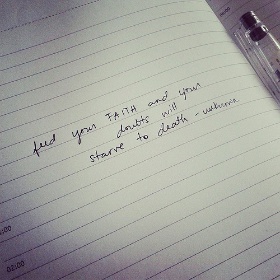 feed your FAITH and your
doubts will
starve to death - unknown
02:00